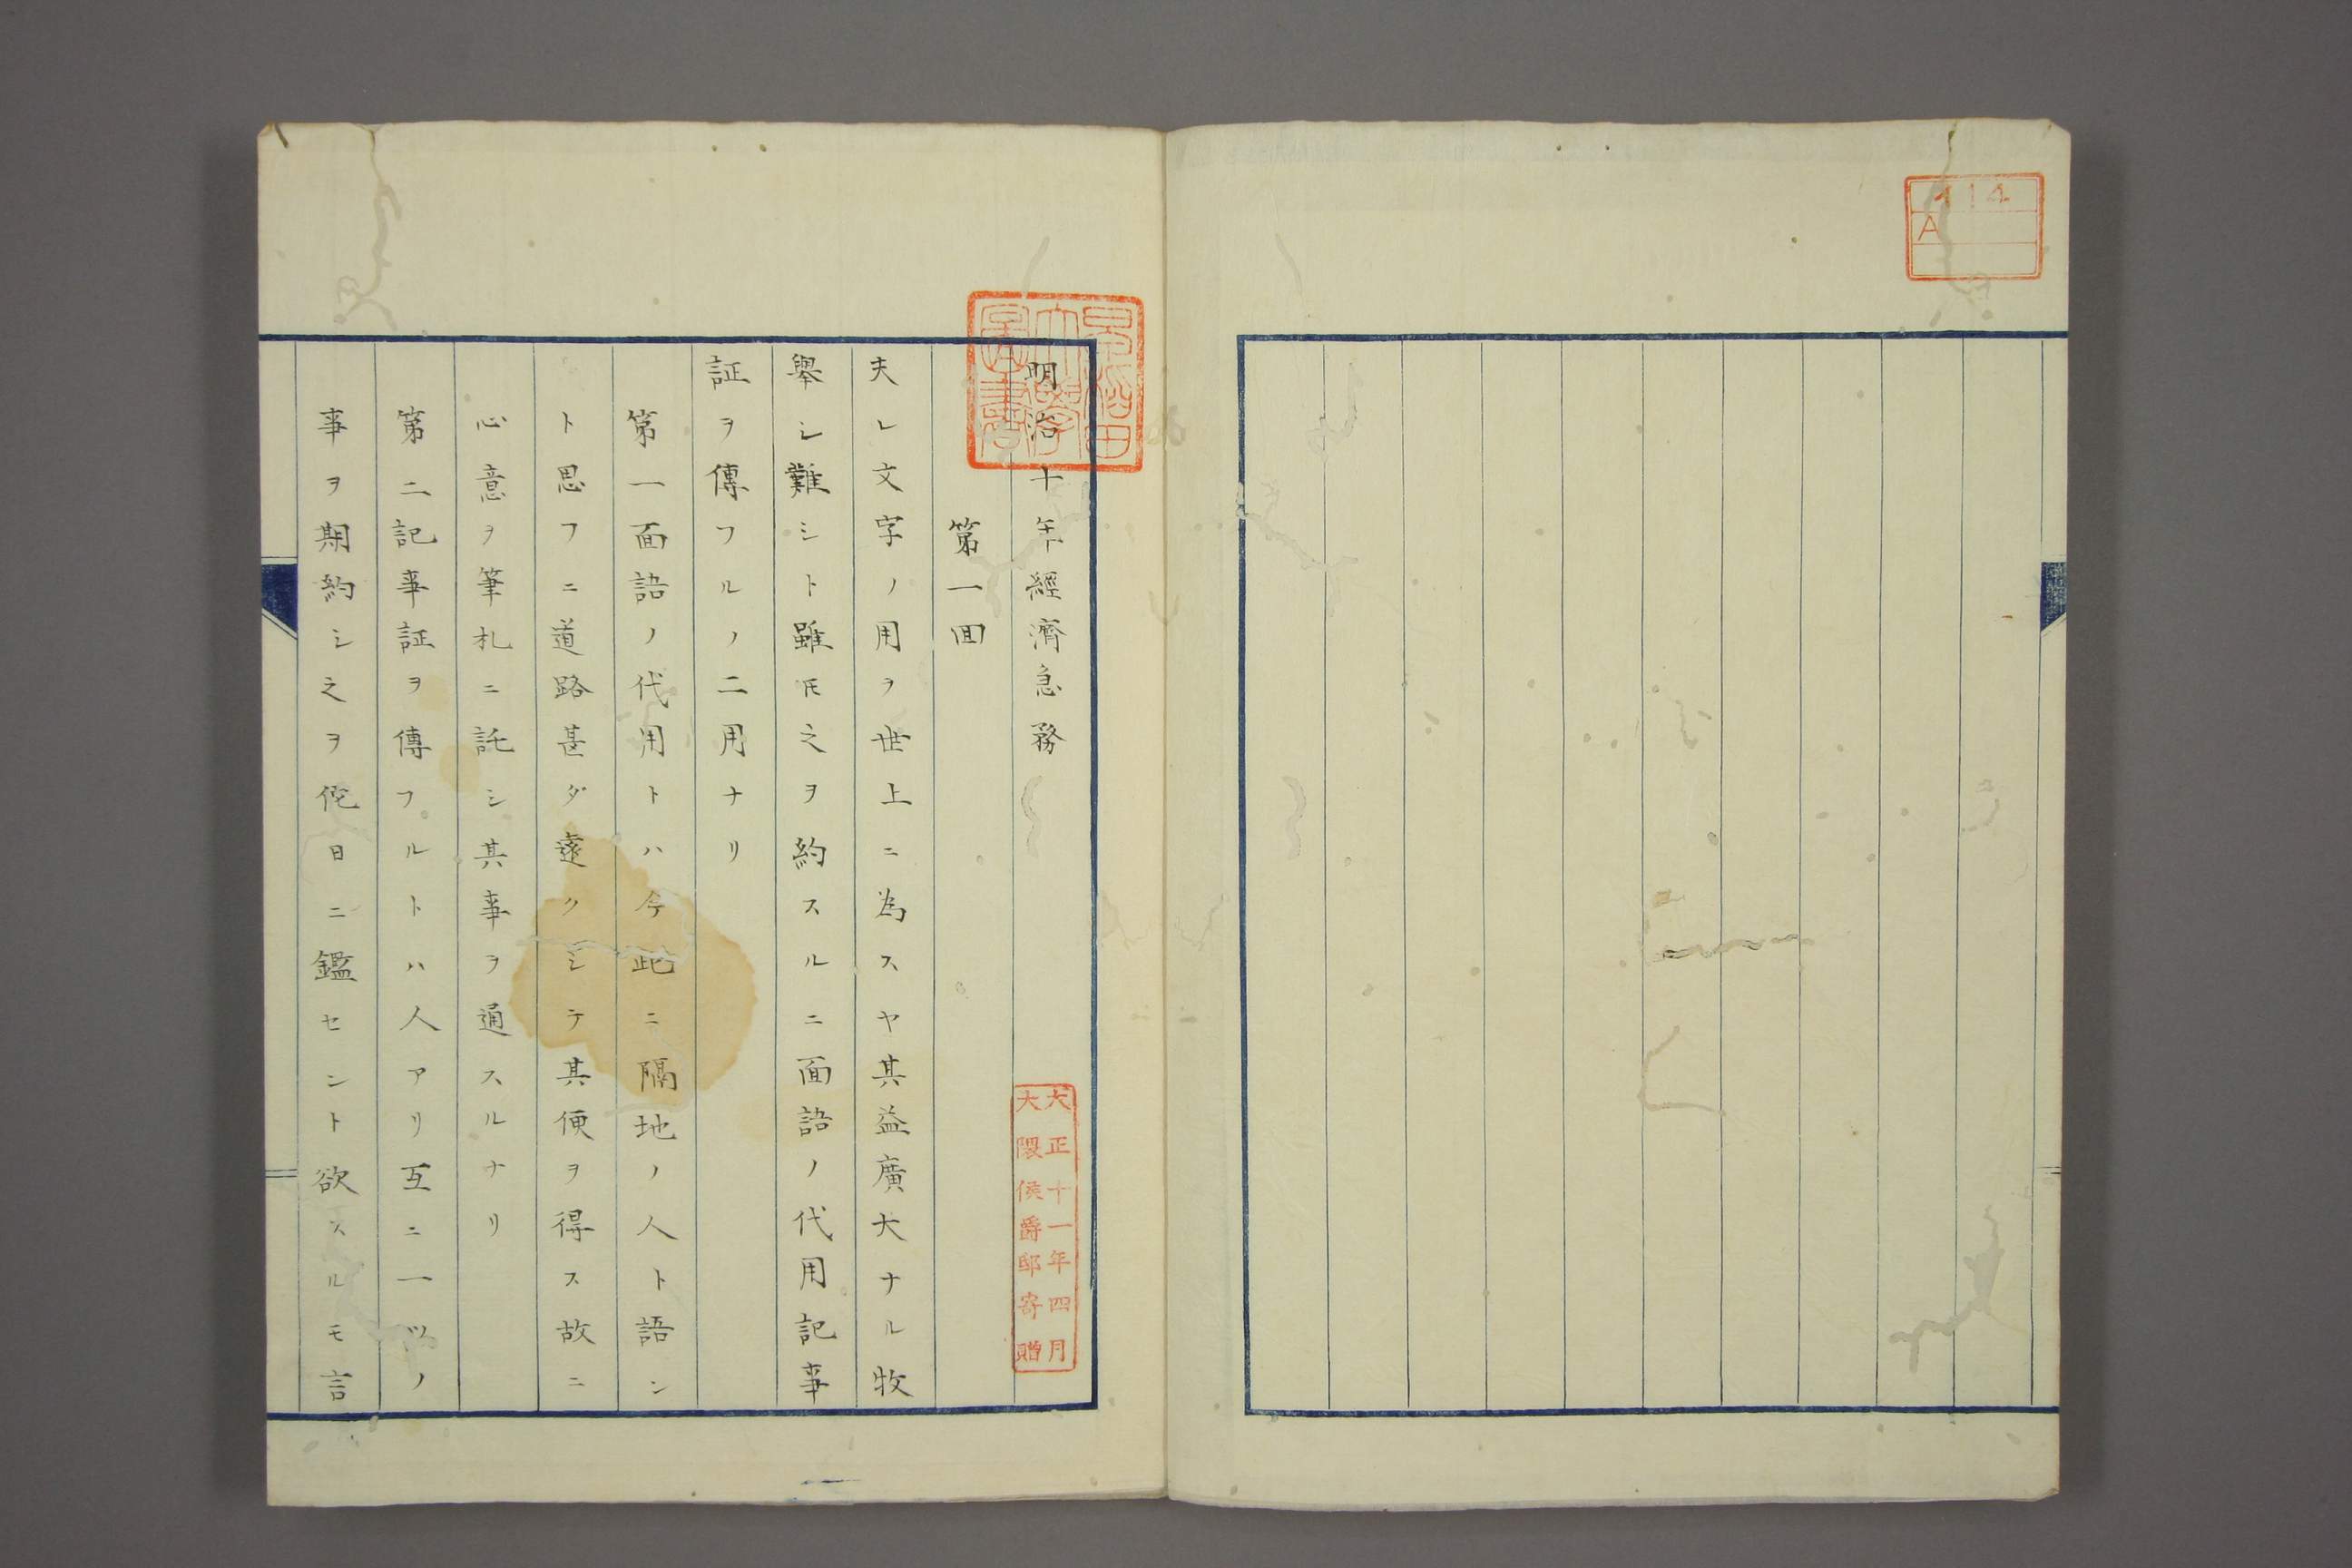 114
A
早稲田大學圖書
明治十年經濟急務
大正十一年四月
大隈侯爵邸寄贈
第一回
夫レ文字ノ用ヲ世上ニ為スヤ其益廣大ナル牧
舉シ難シト雖𪜈之ヲ約スルニ面語ノ代用記事
証ヲ傳フルノ二用ナリ
第一面語ノ代用トハ今此ニ隔地ノ人ト語ン
ト思フニ道路甚ダ遠クシテ其便ヲ得ス故ニ
心意ヲ筆札ニ託シ其事ヲ通スルナリ
第二記事証ヲ傳フルトハ人アリ互ニ一ツノ
事ヲ期約シ之ヲ佗日ニ鑑セント欲スルモ言